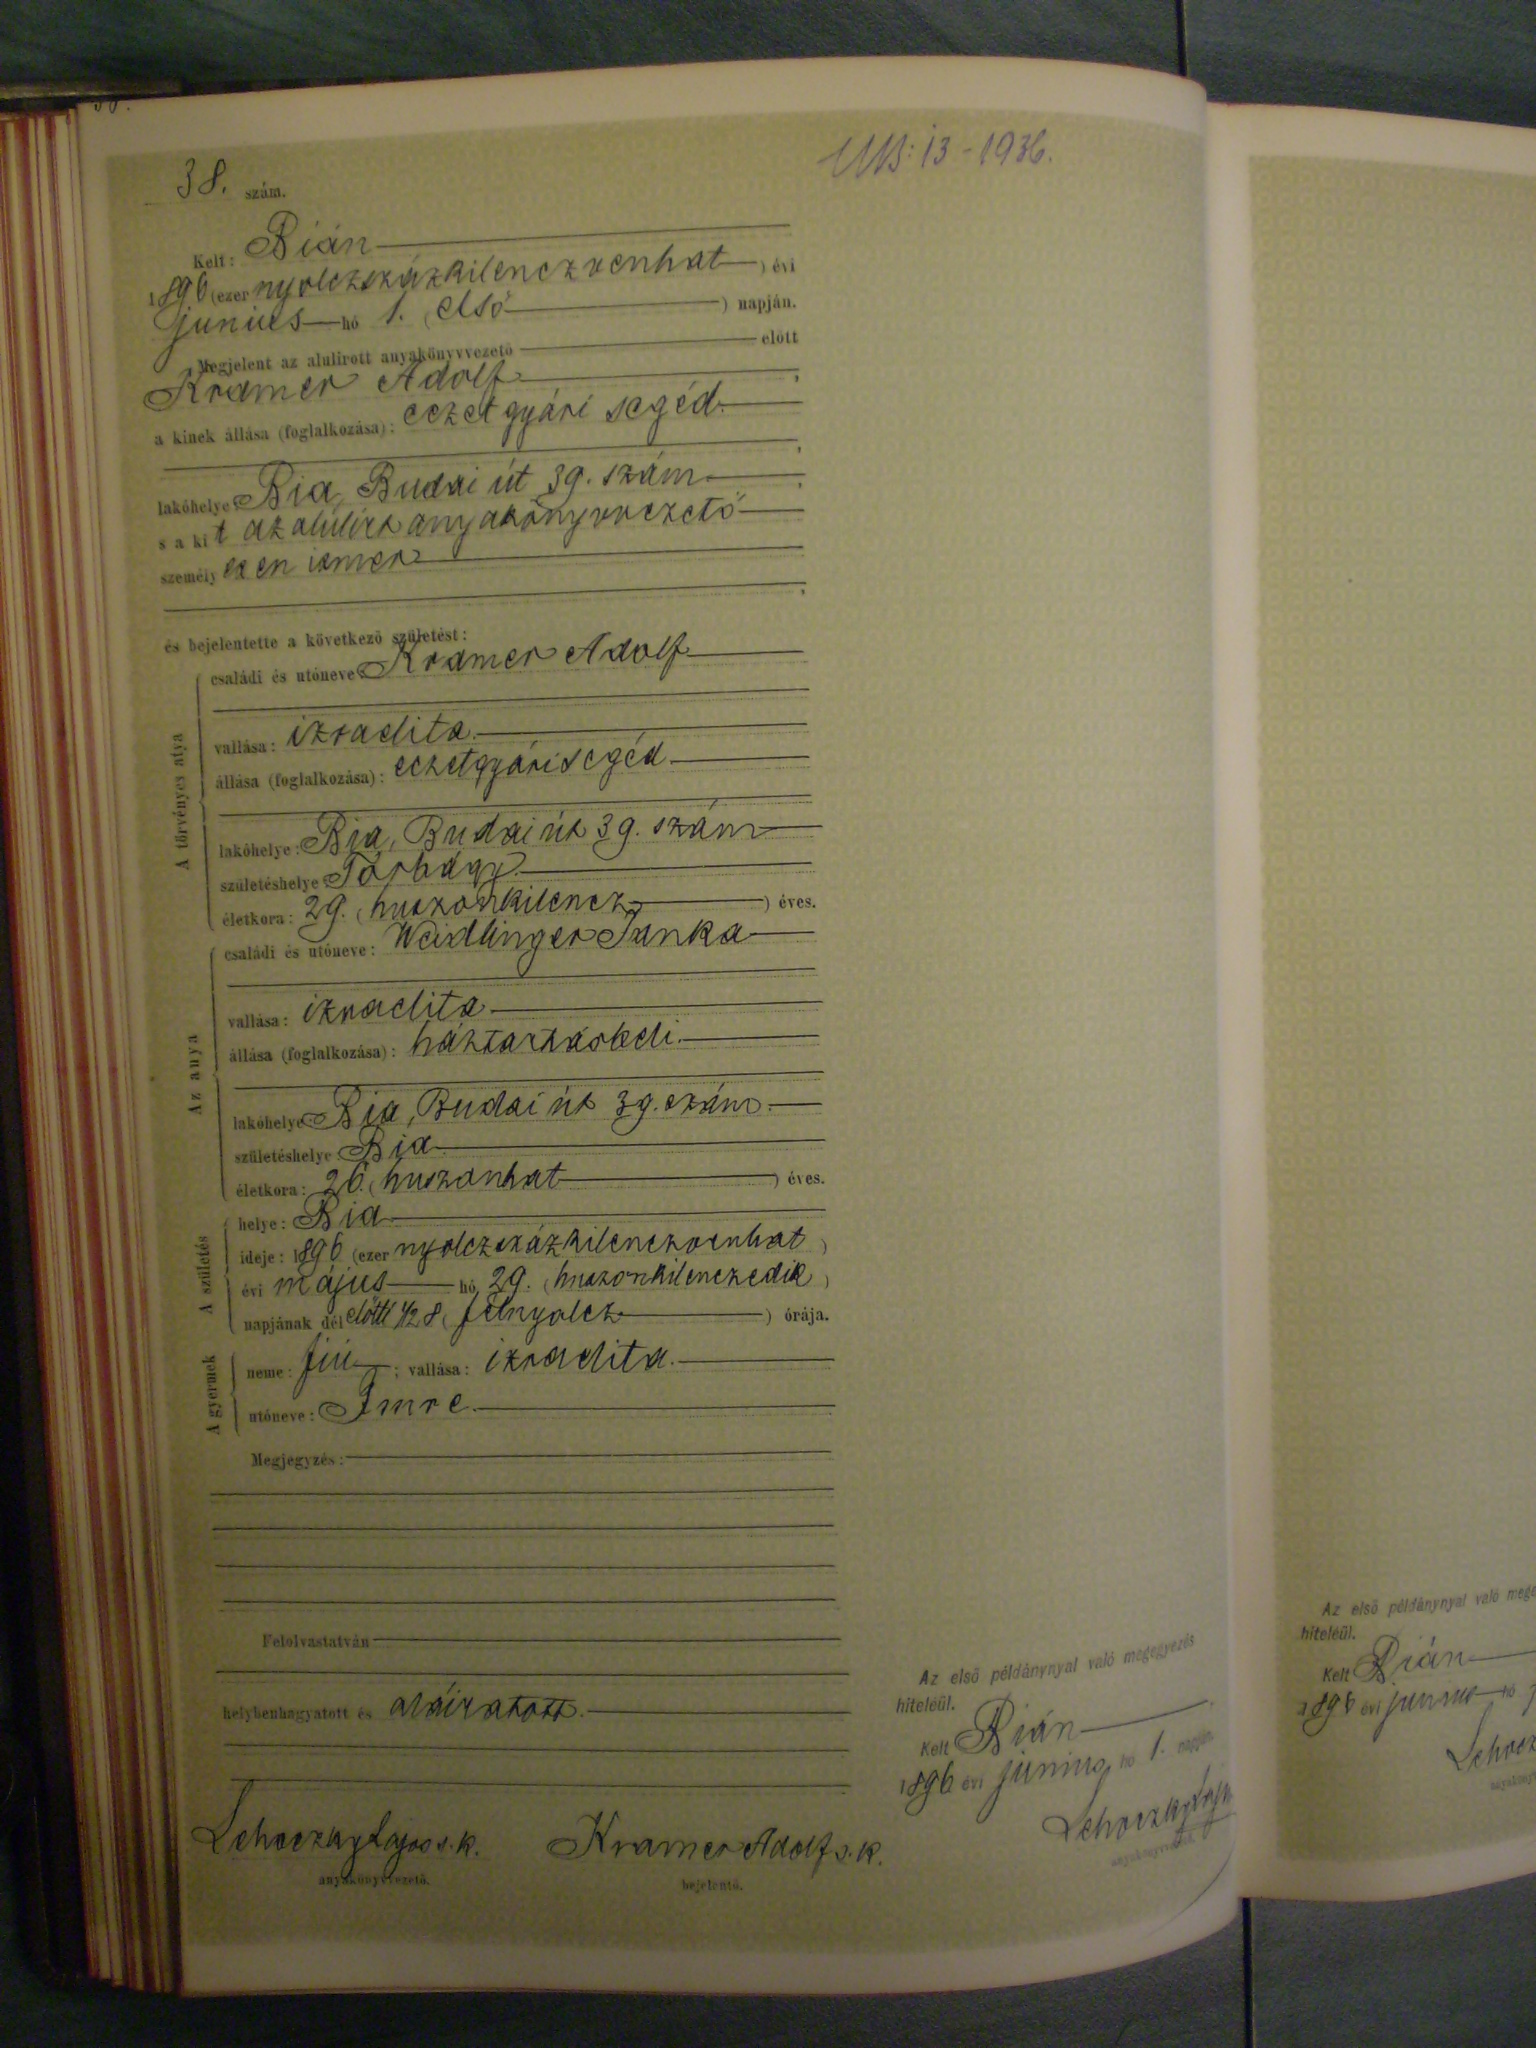 38. szám.
UB: 13 - 1936.
Kelt: Bián
1896 (ezer nyolczszázkilenczvenhat) évi
junius hó 1. (első) napján.
Megjelent az alulirott anyakönyvvezető előtt
Kramer Adolf,
a kinek állása (foglalkozása): eczetgyári segéd
lakóhelye Bia, Budai út 39. szám
s a kit az alulirt anyakönyvvezető
személyesen ismer
és bejelentette a következő születést:
A törvényes atya
családi és utóneve Kramer Adolf
vallása: izraelita.
állása (foglalkozása): eczetgyári segéd
lakóhelye: Bia, Budai út 39. szám
születéshelye Törbágy.
életkora: 29. (huszonkilencz) éves.
Az anya
családi és utóneve: Weidlinger Janka
vallása: izraelita
állása (foglalkozása): háztartásbeli.
lakóhelye Bia, Budai út 39. szám.
születéshelye Bia
életkora: 26. (huszonhat) éves.
A születés
helye: Bia
ideje: 1896 (ezer nyolczszázkilenczvenhat)
évi május hó 29. (huszonkilenczedik)
napjának délelőtti 1/2 8 (félnyolcz) órája.
A gyermek
neme: fiú; vallása: izraelita.
utóneve: Imre.
Megjegyzés:
Felolvastatván
helybenhagyatott és aláiratott.
Lehoczky Lajos s. k.
anyakönyvvezető.
Kramer Adolf s. k.
bejelentő.
Az első példánynyal való megegyezés
hiteléül.
Kelt Bián
1896 évi junius hó 1. napján
Lehoczky Lajos
anyakönyvvezető.
Az első példánynyal való
hiteléül.
Kelt Bián
1896 évi junius hó